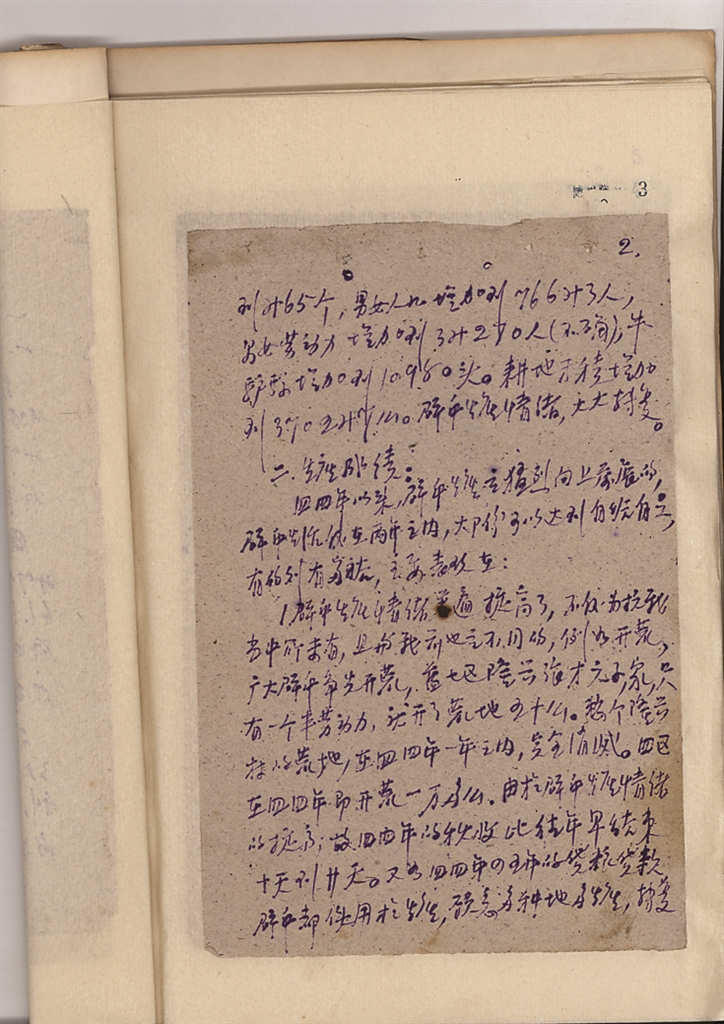 3
2.
到廿65个,男女人口增加到766廿3人,
男女劳动力增加到3廿270人(不确),牛
驴骡增加到10980头。耕地面积增加
到3702廿 么。群众生产情绪,大大转变。
二.生产成绩:
四四年以来,群众生产是猛烈向上发展的,
群众生活仅在两年之内,大部份可以达到自给自足,
有的到有多馀,主要表现在:
1.群众生产情绪普遍提高了,不仅为抗战
当中所未有,且与战前也是不同的,例如开荒,
广大群众争先开荒,旧七区隆兴 张才元子家,只
有一个半劳动力,就开了荒地五十么。整个隆兴
村的荒地,在四四年一年之内,完全消灭。四区
在四四年即开荒一万多么。由于群众生产情绪
的提高,故四四年的秋收比往年早结束
十天到廿天。又如四四年の五年的贷粮贷款
群众都使用于生产,愿意多种地多生产,转变